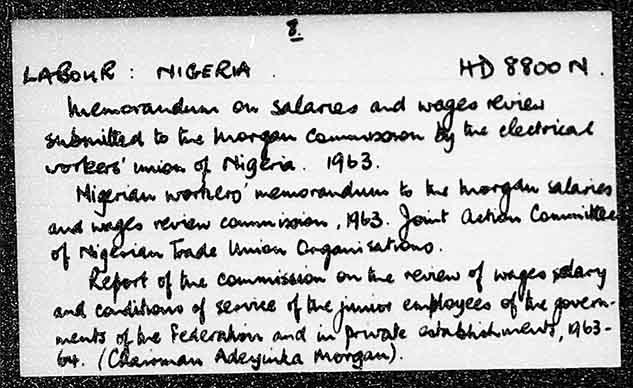 8.
LABOUR : NIGERIA . HD 8800 N .
Memorandum on salaries and wages review
submitted to the Morgan Commission by the electrical
workers' union of Nigeria. 1963.
Nigerian workers' memorandum to the Morgan salaries
and wages review commission, 1963. Joint Action Committee
of Nigerian Trade Union Organisations.
Report of the commission on the review of wages salary
and conditions of service of the junior employees of the govern-
ments of the Federation and in private establishments, 1963-
64. (Chairman Adeyinka Morgan).